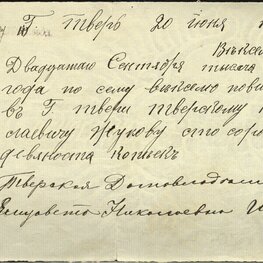 Г Тверь 20 июня
Двадцатаго Сентября тысяча
года по сему векселю пови
въ Г Твери тверскому
славичу Жукову сто соро
девяноста копѣекъ
Тверская Домовладѣли
Елизавета Николаевна